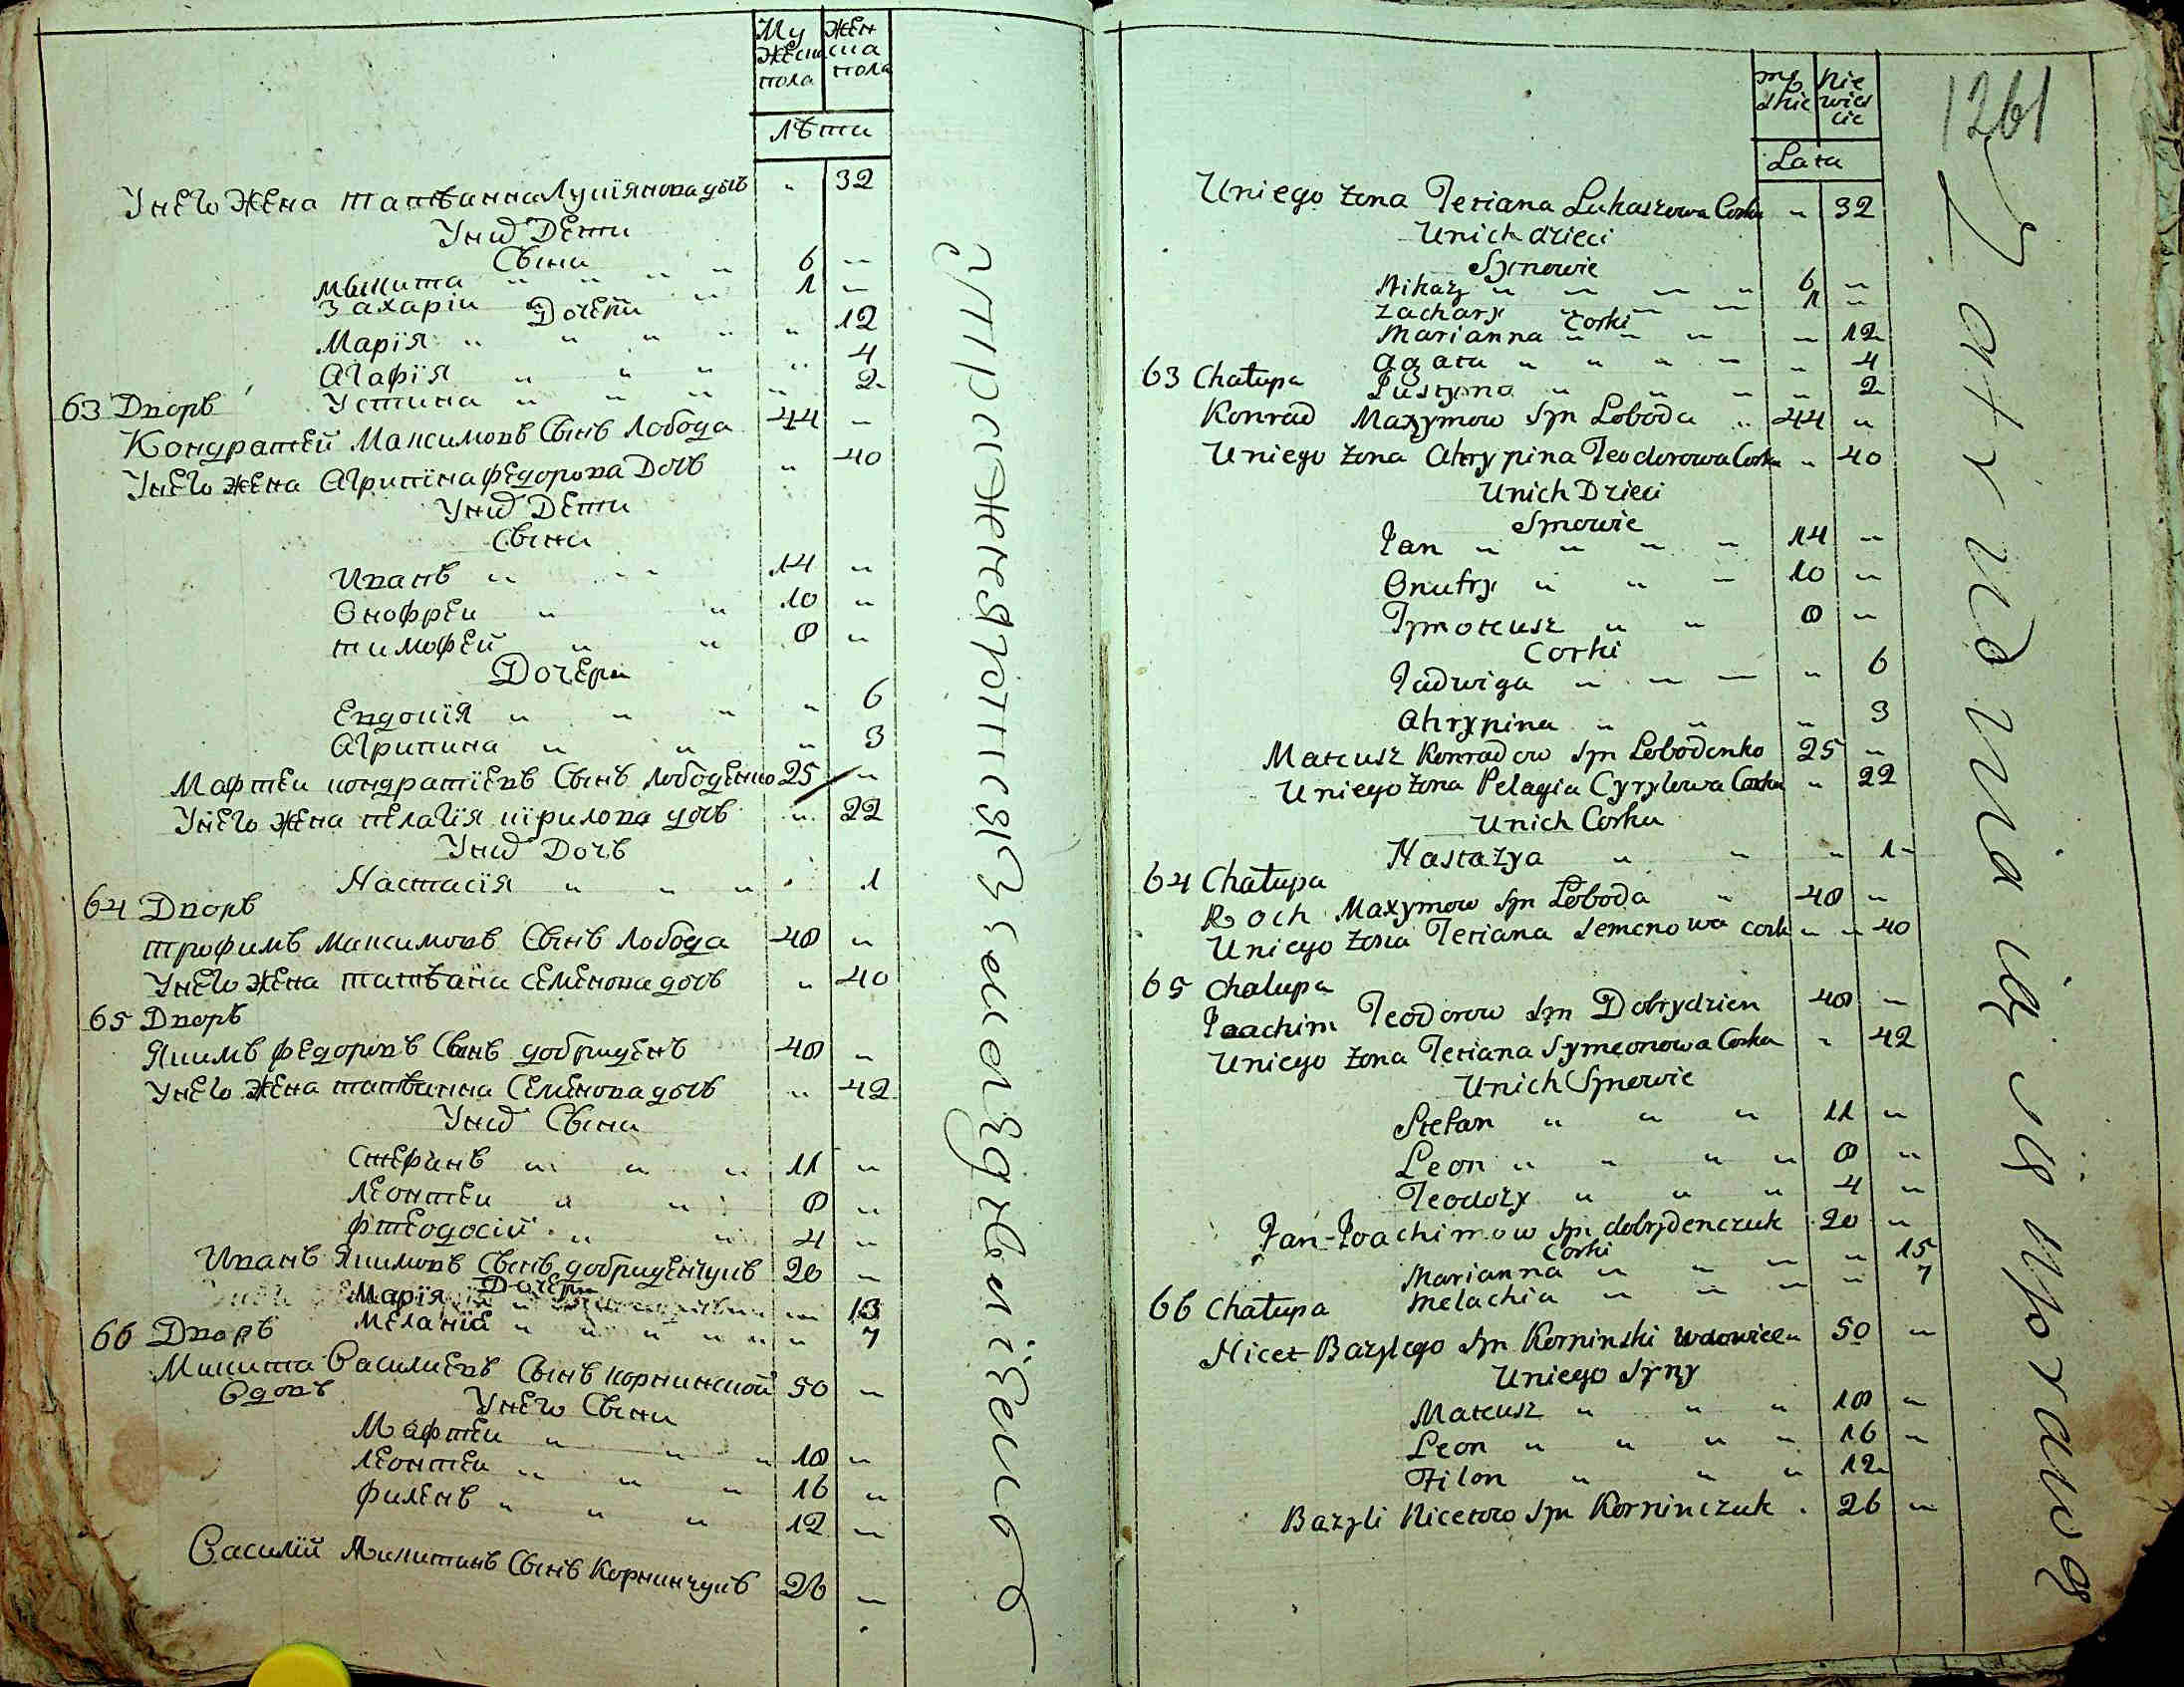 Му
жеска
пола
Жен
ска
пола
Лѣти
У него жена Татѣанна Лукїянова дочь " 32
У них Дети
Сыни
Мыкита " " " " 6 "
Захарїи " " " 1 "
Дочери
Марїя " " " " " 12
Агафїя " " " " 4
Устина " " " " 2
63 Дворъ
Кондратей Максимовъ Сынъ Лобода 44 "
У него жена Агрипїна Федорова Дочь " 40
У них Дети
Сыни
Иванъ " " " 14 "
Онофреи " " 10 "
Тимофей " " 8 "
Дочери
Евдокїя " " " " 6
Агрипина " " " 3
Мафтеи Кондратїевъ Сынъ Лободенко 25 "
У него жена Пелагїя Кїрилова дочь " 22
У них Дочь
Настасїя " " " " 1
64 Дворъ
Трофимъ Максимовъ Сынъ Лобода 48 "
У него жена Татѣана Семенова дочь " 40
65 Дворъ
Якимъ Федоровъ Сынъ Добриденъ 48 "
У него жена Татѣанна Семенова дочь " 42
У них Сыни
Стефанъ " " " 11 "
Леонтеи " " 8 "
Фтеодосїй " " 4 "
Иванъ Якимовъ Сынъ Добриденчукъ 20 "
Дочери
Марїя
Меланїя " " " " " " 7
66 Дворъ
Микита Василиевъ Сынъ Корнинской 50 "
Вдовъ
У него Сыни
Мафтеи " " " 18 "
Леонтеи " " " 16 "
Филонъ " " " 12 "
Василїй Микитинъ Сынъ Корнинчукъ 26 "
mę
skie
Nie
wies
cie
Lata
1261
U niego żona Teciana Lukaszowa Corka " 32
U nich dzieci
Synowie
Nikaz " " " " 6 "
Zachary " " " 1 "
Corki
Marianna " " " " 12
Agata " " " " " 4
Justyna " " " " 2
63 Chałupa
Konrad Maxymow Syn Loboda " 44 "
U niego żona Ahrypina Teodorowa Corka " 40
U nich Dzieci
Synowie
Jan " " " " 14 "
Onufry " " " 10 "
Tymoteusz " " 8 "
Corki
Jadwiga " " " " 6
Ahrypina " " " 3
Mateusz Konradow Syn Lobodenko 25 "
U niego żona Pelagia Cyrylowa Corka " 22
U nich Corka
Nastazya " " " 1
64 Chałupa
Roch Maxymow Syn Loboda " 48 "
U niego żona Teciana Semenowa cork " " 40
65 Chałupa
Joachim Teodorow Syn Dobrydzien 48 "
U niego żona Teciana Symeonowa Corka " 42
U nich Synowie
Stefan " " " 11 "
Leon " " " " 8 "
Teodozy " " " 4 "
Jan Joachimow Syn dobrydenczuk 20 "
Corki
Marianna " " " " 15
Melachia " " " " 7
66 Chałupa
Nicet Bazylego Syn Korninski wdowiec " 50 "
U niego Syny
Mateusz " " " 18 "
Leon " " " " 16 "
Filon " " " 12
Bazyli Nicetow Syn Korninczuk . 26 "